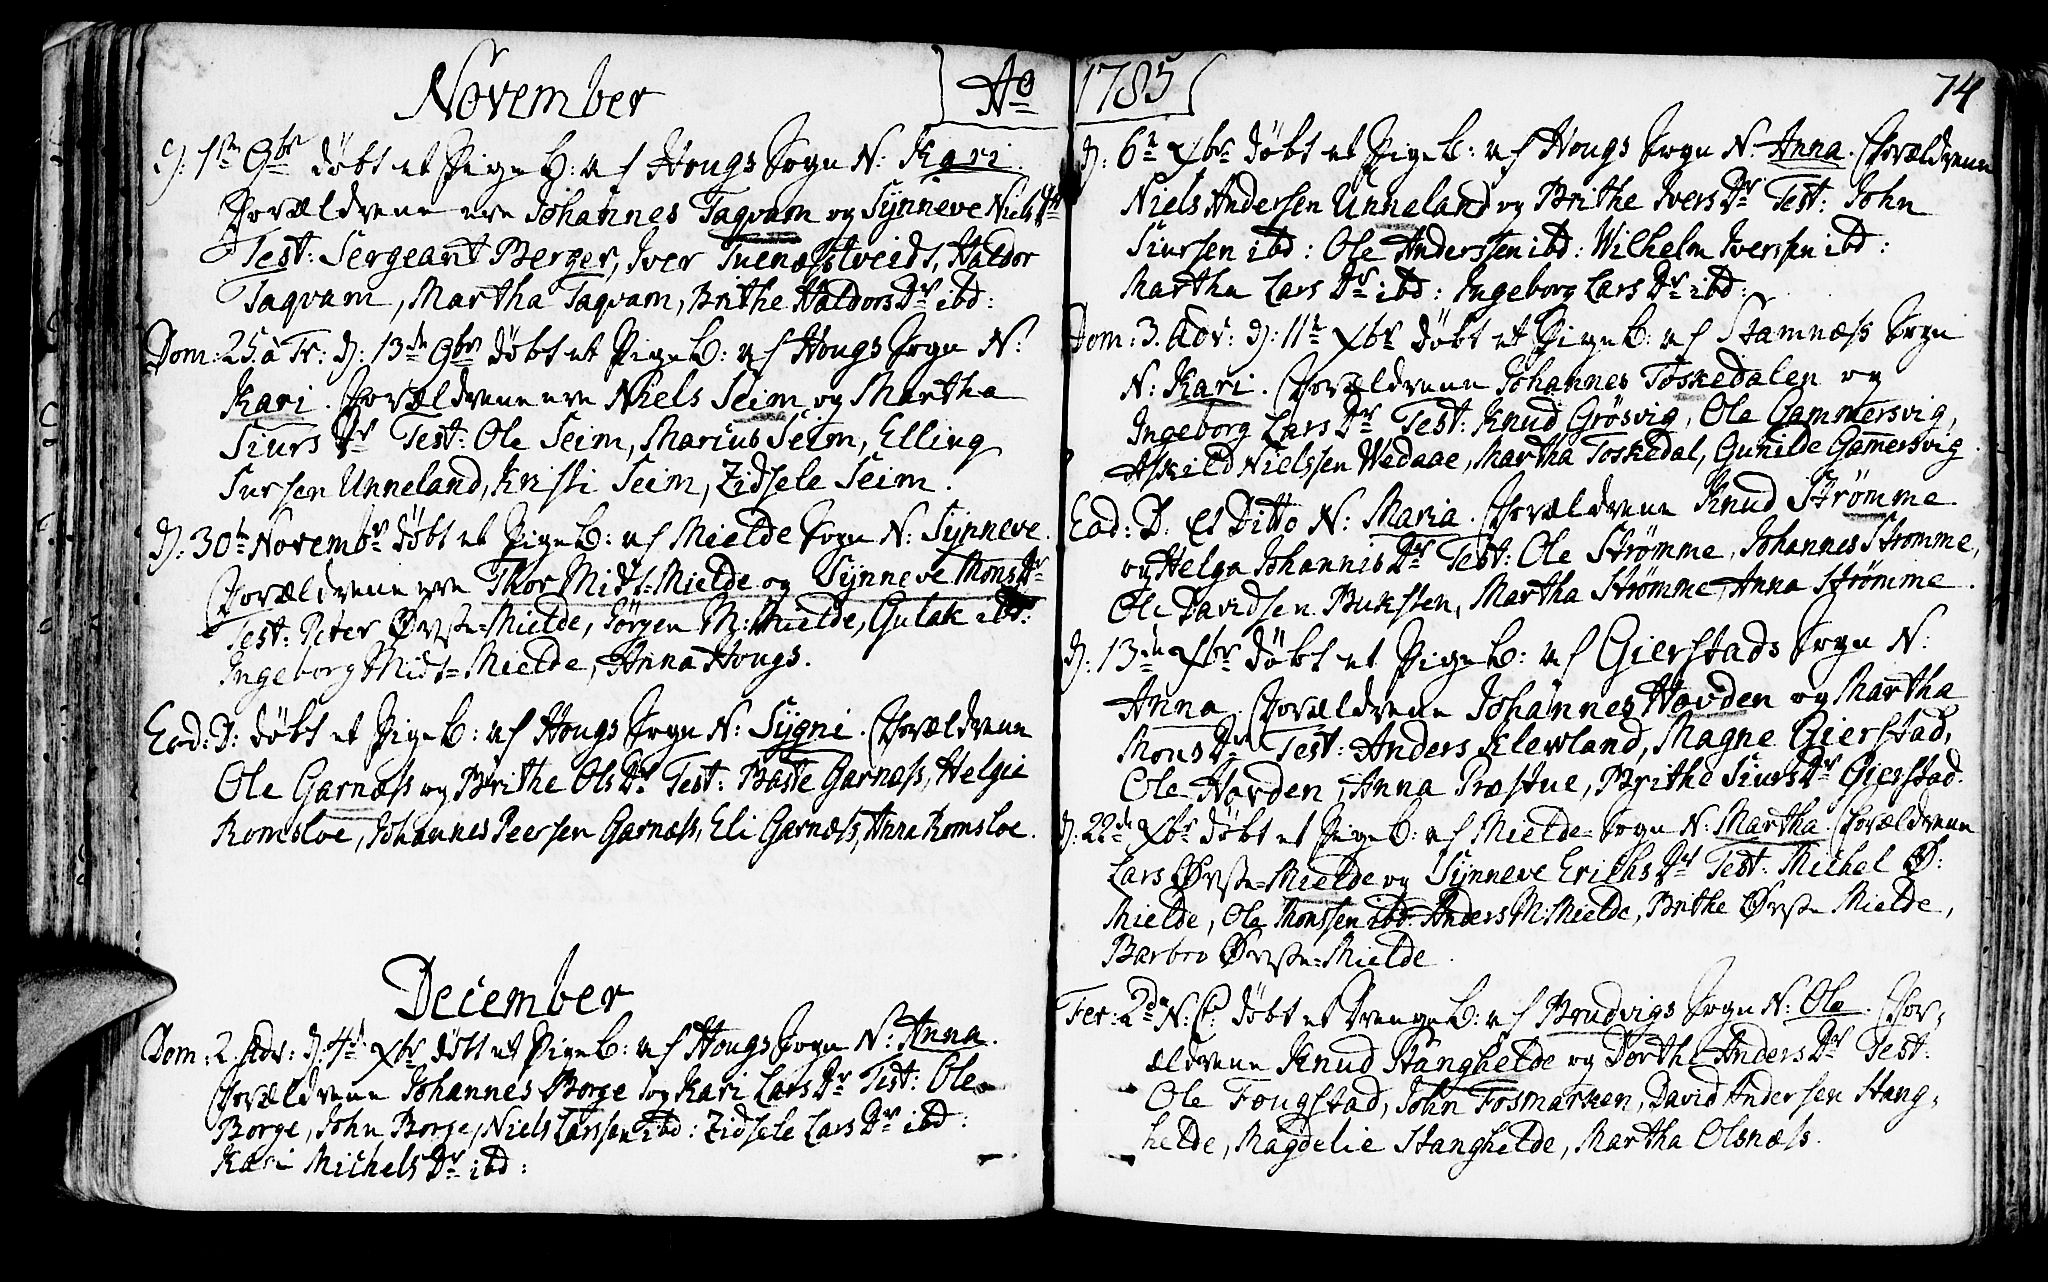 November
Ao
d: 1ste 9br døbt et Pige B: af Hougs Sogn N: Kari.
Forældrene ere Johannes Taqvam og Synneve Niels Dr
Test: Sergeant Berger, Iver Tuenæstveidt, Haldor
Taqvam, Martha Taqvam, Brithe Haldors Dr ibd:
Dom: 25 a Tr: d: 13de 9br døbt et Pige B: af Hougs Sogn N:
Kari. Forældrene ere Niels Seim og Martha
Siurs Dr Test: Ole Seim, Marcus Seim, Elling
Sursen Unneland, Kristi Seim, Zidsele Seim.
d: 30te Novembr døbt et Pige B: af Mielde Sogn N: Synneve.
Forældrene ere Thor Midt=Mielde og Synneve Mons Dr
Test: Peter Øvste=Mielde, Jørgen M: Mielde, Gulak ibd:
Ingeborg Midt=Mielde, Anna Hougs.
Eod: D: døbt et Pige B: af Hougs Sogn N: Sygni. Forældrene
Ole Garnæss og Brithe Ols Dr Test: Baste Garnæss, Helgie
Romsloe, Johannes Peersen Garnæss, Eli Garnæss, Anna Romsloe.
December
Dom: 2. Adv: d: 4de Xbr døbt et Pige B: af Hougs Sogn N: Anna.
Forældrene Johannes Borge og Kari Lars Dr Test: Ole
Borge, John Borge, Niels Larssen ibd: Zidsele Lars Dr ibd:
Kari Michels Dr ibd:
1785
74
d: 6te Xbr døbt et Pige B: af Hougs Sogn N: Anna. Forældrene
Niels Andersen Unneland og Brithe Ivers Dr Test: John
Siursen ibd: Ole Anderssen ibd: Wilhelm Iverssen ibd:
Martha Lars Dr ibd: Ingeborg Lars Dr ibd:
Dom: 3. Adv: d: 11te Xbr døbt et Pige B: af Stamnæss Sogn
N: Kari. Forældrene Johannes Toskedalen og
Ingeborg Lars Dr Test: Knud Grøsvig, Ole Gammersvig,
Askild Nielssen Wadaae, Martha Toskedal, Gunilde Gamersvig.
Eod: D: et Ditto N: Maria. Forældrene Knud Strømme
og Helga Johannis Dr Test: Ole Strømme, Johannes Strømme,
Ole Davidsen Buksten, Martha Strømme, Anna Strømme.
d: 13de Xbr døbt et Pige B: af Gierstads Sogn N:
Anna. Forældrene Johannes Hovden og Martha
Mons Dr Test: Anders Klewland, Magne Gierstad,
Ole Hovden, Anna Præstue, Brithe Siurs Dr Gierstad.
d: 22de Xbr døbt et Pige B: af Mielde=Sogn N: Martha. Forældrene
Lars Øvste=Mielde og Synneve Erichs Dr Test: Michel Ø:
Mielde, Ole Monssen ibd: Anders M: Mielde, Brithe Øvste Mielde,
Barbro Øvste=Mielde.
Fer: 2da N: C: døbt et Drenge B: af Brudvigs Sogn N: Ole. For,
ældrene Knud Stanghelde og Dorthe Anders Dr Test:
Ole Fougstad, John Fosmarken, David Andersen Stang,
helde, Magdelie Stanghelde, Martha Olsnæss.